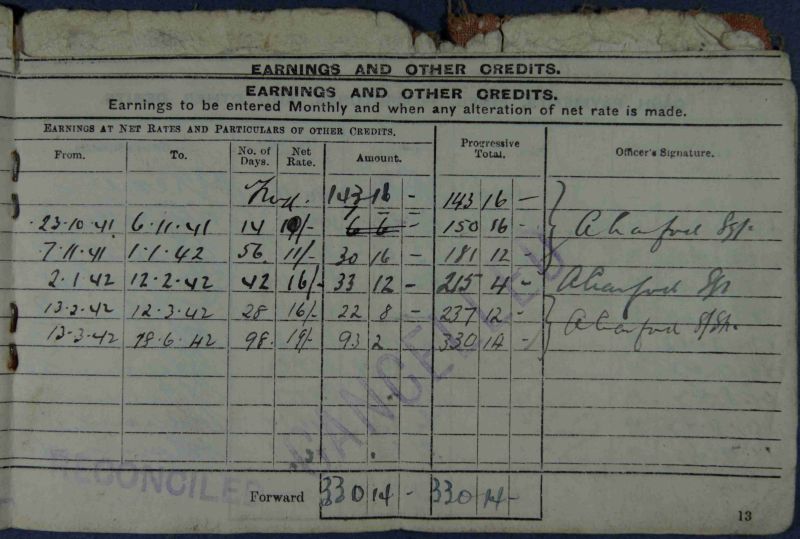 EARNINGS AND OTHER CREDITS.
EARNINGS AND OTHER CREDITS.
Earnings to be entered Monthly and when any alteration of net rate is made.
EARNINGS AT NET RATES AND PARTICULARS OF OTHER CREDITS.
Progressive Total.
Officer's Signature.
From. To. No. of Days. Net Rate. Amount.
143 16 - 143 16 -
23·10·41 6·11·41 14 10/- 150 16 -
7·11·41 1·1·42 56 11/- 30 16 - 181 12 -
2·1·42 12·2·42 42 16/- 33 12 - 215 4 -
13·2·42 12·3·42 28 16/- 22 8 - 237 12 -
13·3·42 18·6·42 98 19/- 93 2 330 14 -
CANCELLED
RECONCILED
Forward 330 14 - 330 14 -
13